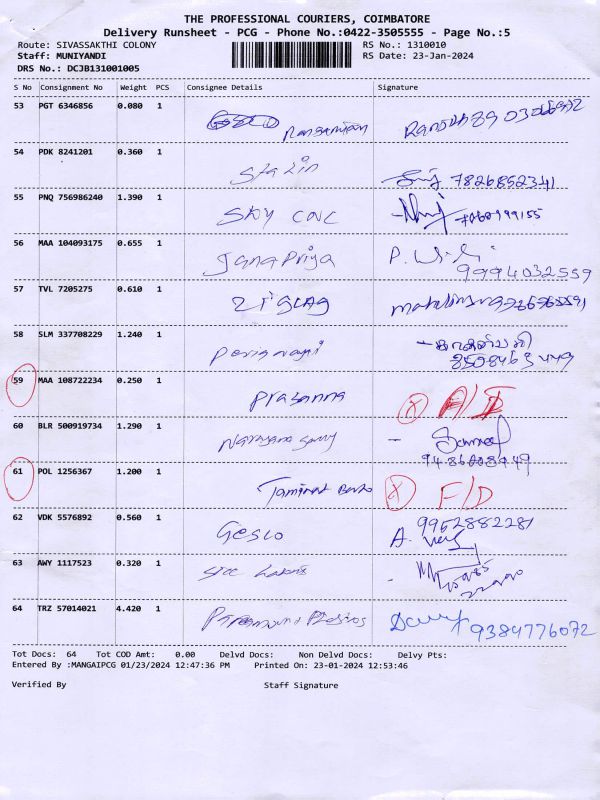 THE PROFESSIONAL COURIERS, COIMBATORE
Delivery Runsheet - PCG - Phone No.:0422-3505555 - Page No.:5
Route: SIVASSAKTHI COLONY RS No.: 1310010
Staff: MUNIYANDI RS Date: 23-Jan-2024
DRS No.: DCJB131001005
S No Consignment No Weight PCS Consignee Details Signature
53 PGT 6346856 0.080 1
54 PDK 8241201 0.360 1 Stalin 7826852341
55 PNQ 756986240 1.390 1 Sky
56 MAA 104093175 0.655 1 Janapriya P. 9994032559
57 TVL 7205275 0.610 1 ZIGZAG
58 SLM 337708229 1.240 1
59 MAA 108722234 0.250 1 Prasanna
60 BLR 500919734 1.290 1
61 POL 1256367 1.200 1 F/D
62 VDK 5576892 0.560 1 Gesco 9952882281
A.
63 AWY 1117523 0.320 1
64 TRZ 57014021 4.420 1 9384776072
Tot Docs: 64 Tot COD Amt: 0.00 Delvd Docs: Non Delvd Docs: Delvy Pts:
Entered By :MANGAIPCG 01/23/2024 12:47:36 PM Printed On: 23-01-2024 12:53:46
Verified By Staff Signature